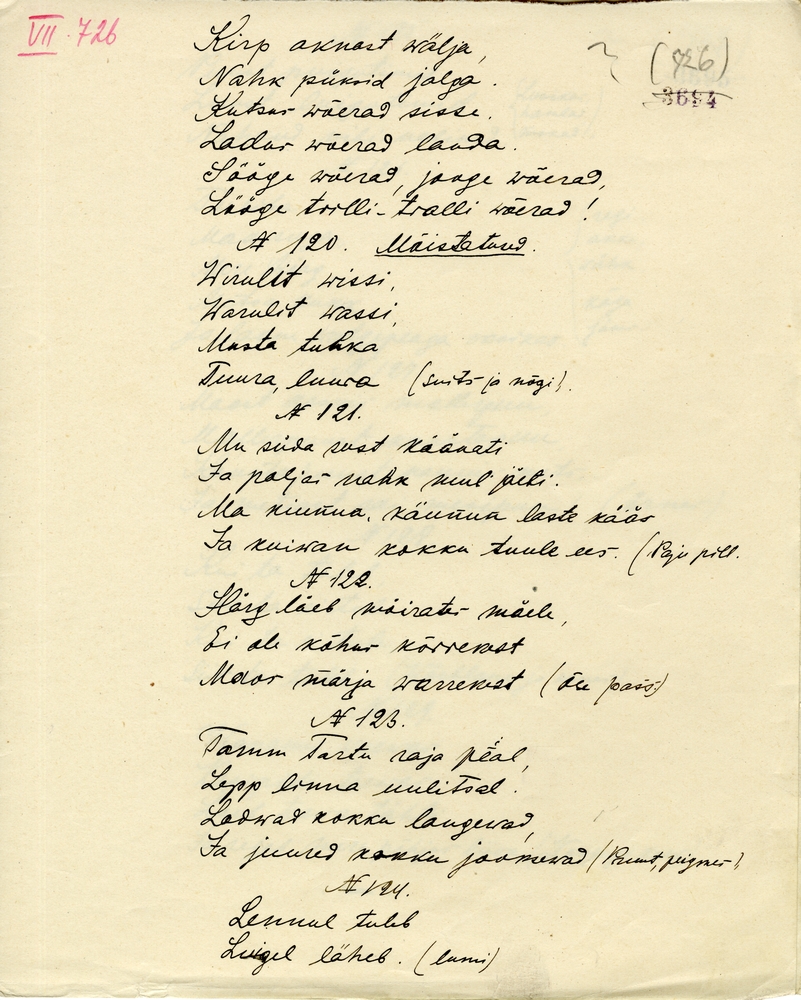 VII 726
(726)
3694
Kirp aknast wälja,
Nahk püksid jalga.
Kutsus wõerad sisse.
Ladus wõerad lauda.
Sööge wõerad, jooge wõerad,
Lööge trilli-tralli wõerad!
№ 120. Mõistatused.
Wirulit wissi,
Warulit wassi,
Musta tuhka
Tuura, luura (suits ja nõgi).
№ 121.
Mu süda sust käänati
Ja paljas nahk mul jäeti.
Ma kiunun, käunun laste käes
Ja kuiwan kokku tuule ees. (Paju pill.
№ 122.
Härg läeb möirates mäele,
Ei ole kõhus kõrrekest
Maos märja warrekest
№ 123.
Tamm Tartu raja pääl,
Lepp linna uulitsal.
Ladwad kokku langewad,
Ja juured kokku jooksewad (Pruut, peigmees),
№ 124.
Lennul tuleb
Luigel läheb. (lumi)